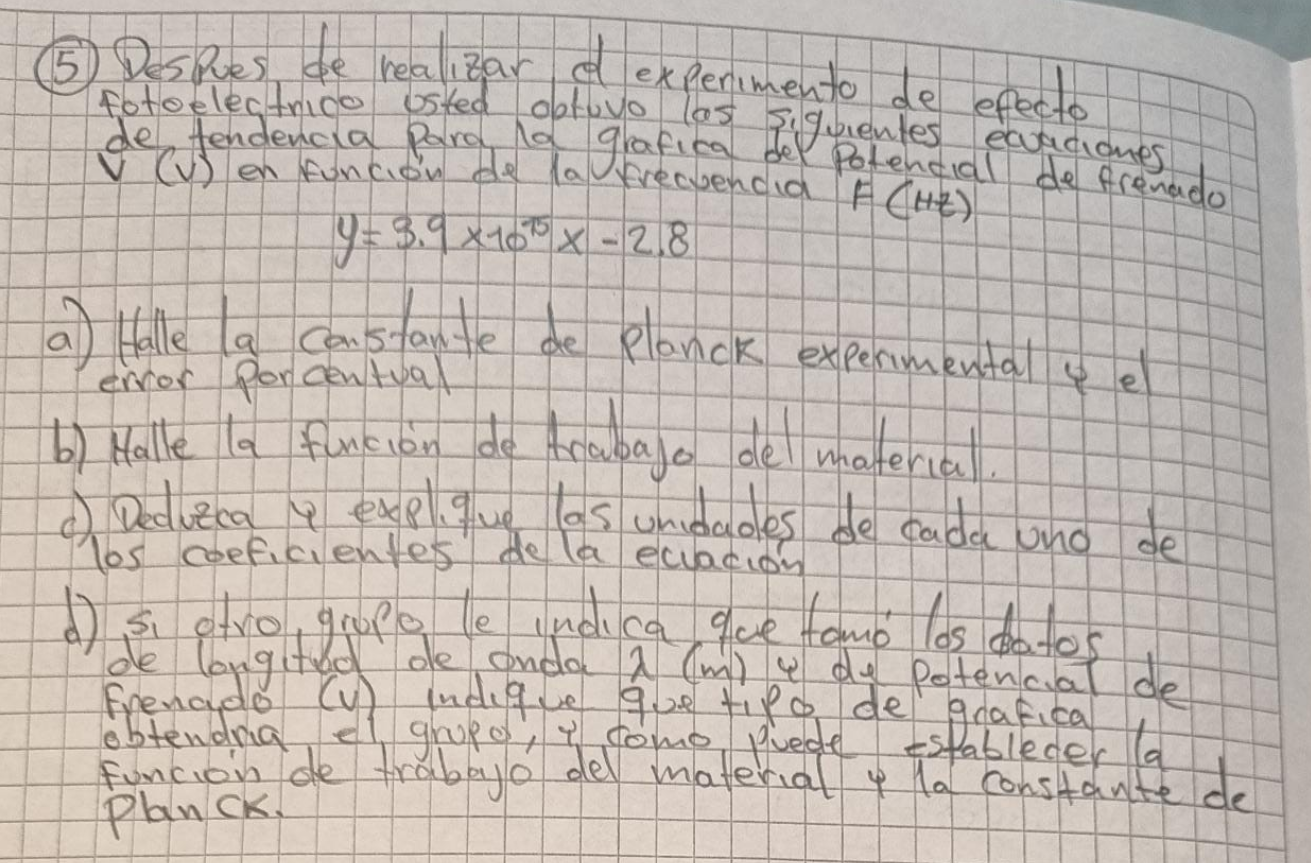 ⑤ Despues de realizar el experimento de efecto
fotoelectrico usted obtuvo las siguientes ecuaciones
de tendencia para la grafica del Potencial de frenado
V (V) en función de la frecuencia F (Hz)
y = 3.9 x 10⁻¹⁵ x - 2.8
a) Halle la constante de Planck experimental y el
error porcentual
b) Halle la función de trabajo del material.
c) Deduzca y explique las unidades de cada uno de
los coeficientes de la ecuación
d) Si otro grupo le indica que tomó los datos
de longitud de onda λ (m) y de Potencial de
Frenado (V) indique que tipo de grafica
obtendria el grupo, y como puede establecer la
función de trabajo del material y la constante de
Planck.